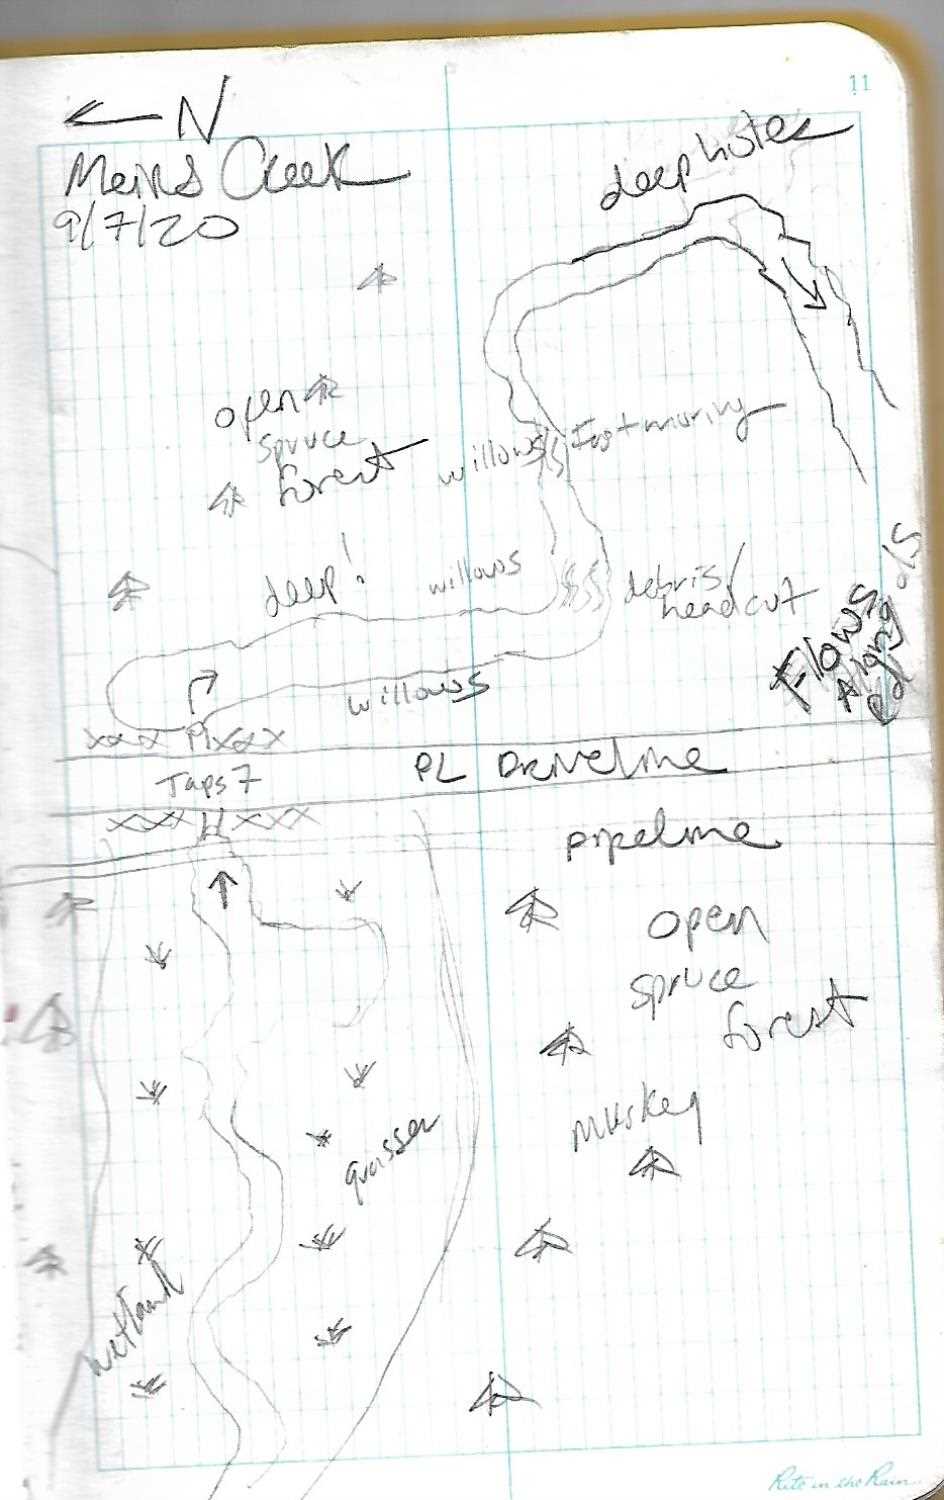 11
N
Meiks Creek
9/7/20
deep holes
open
spruce
forest
willows
fast moving
deep!
willows
debris/
headcut
willows
Flows
along
xxx xxx
Taps 7
PL Driveline
xxx xxx
pipeline
open
spruce
forest
muskeg
grasses
wetland
Rite in the Rain